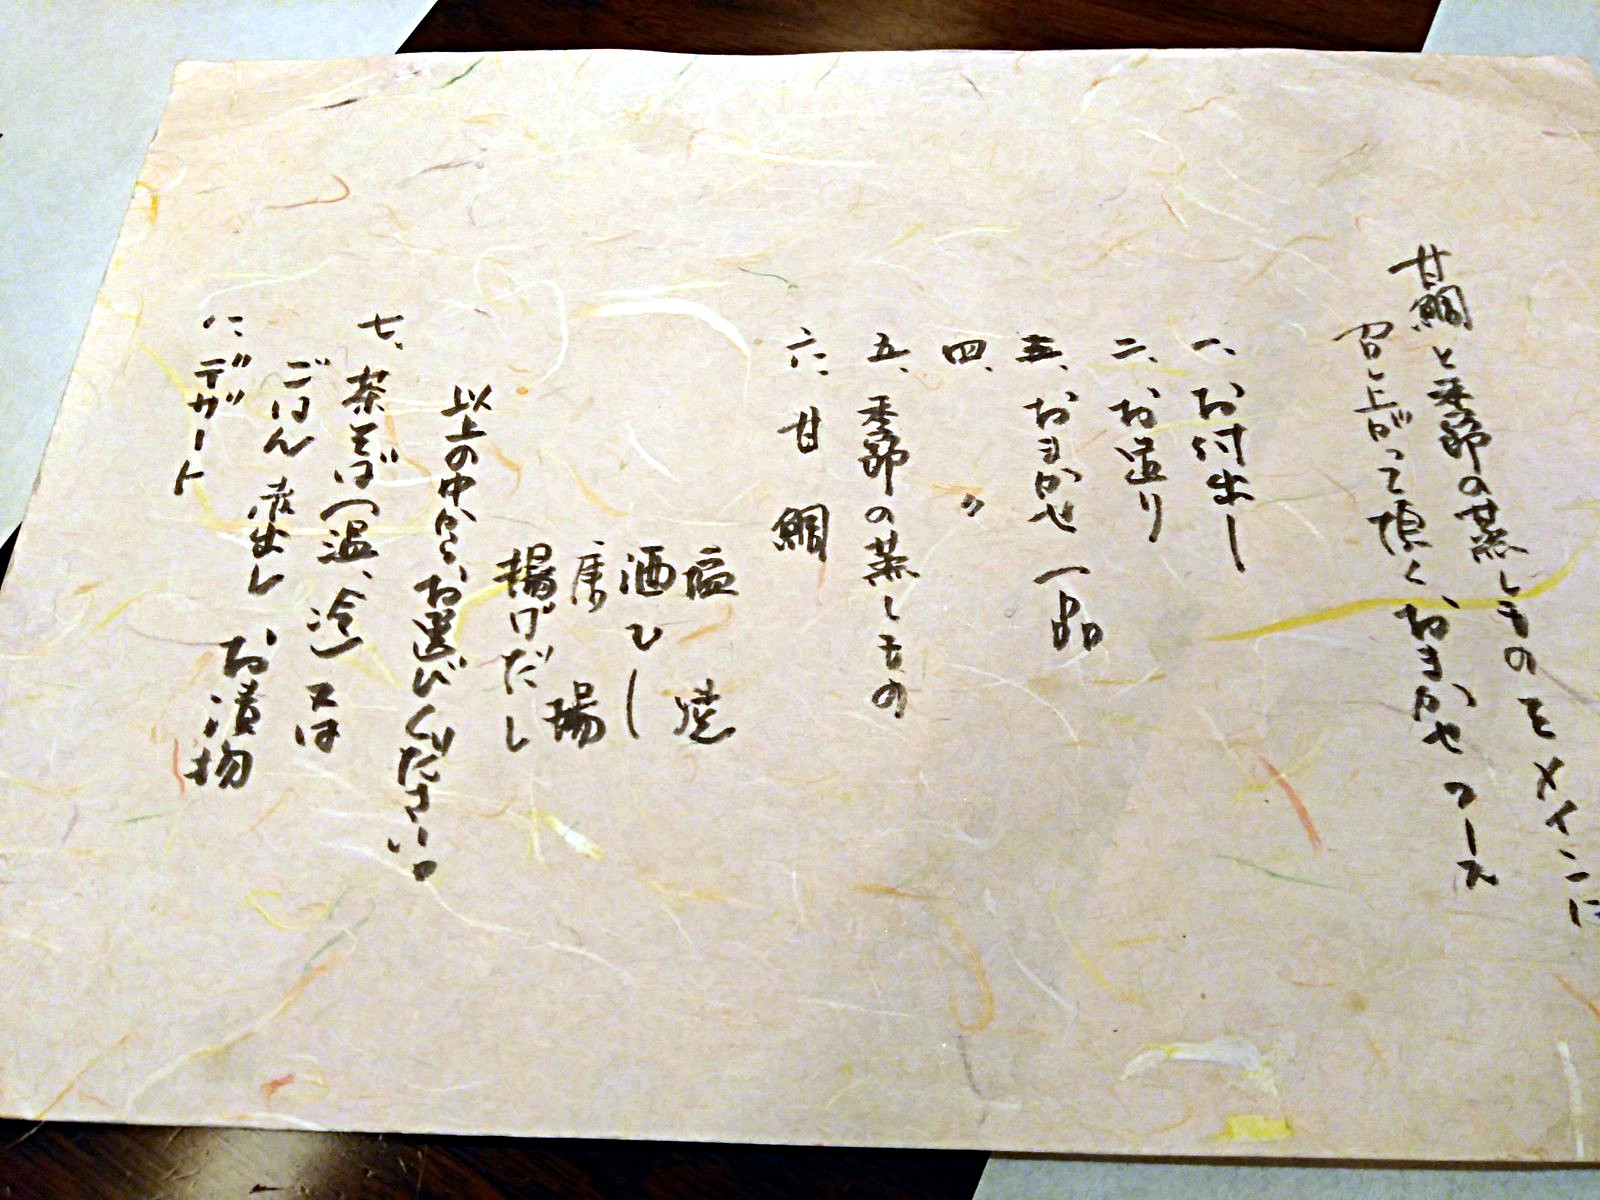 甘鯛と季節の蒸しものをメインに
召し上がって頂くおまかせコース
一、お付出し
二、お造り
三、おまかせ一品
四、〃
五、季節の蒸しもの
六、甘鯛
塩焼
酒むし
唐揚
揚げだし
以上の中から、お選びください。
七、茶そば（温、冷）又は
ごはん 赤出し お漬物
八、デザート